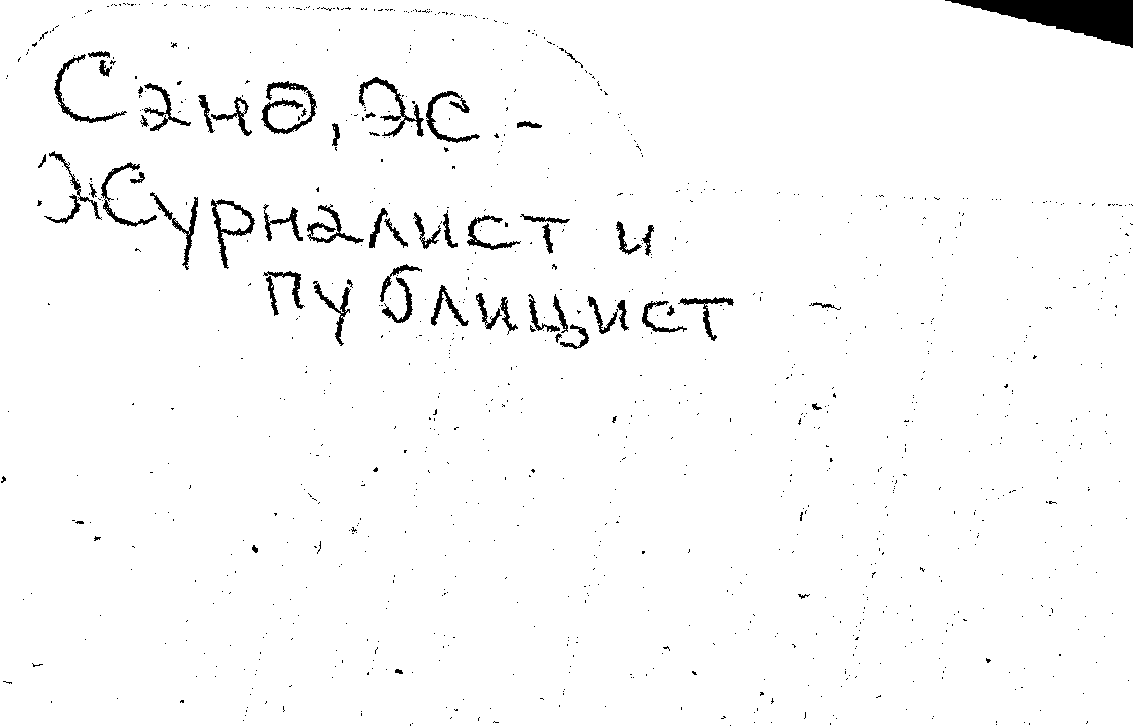 Санд, Ж. -
Журналист и
публицист